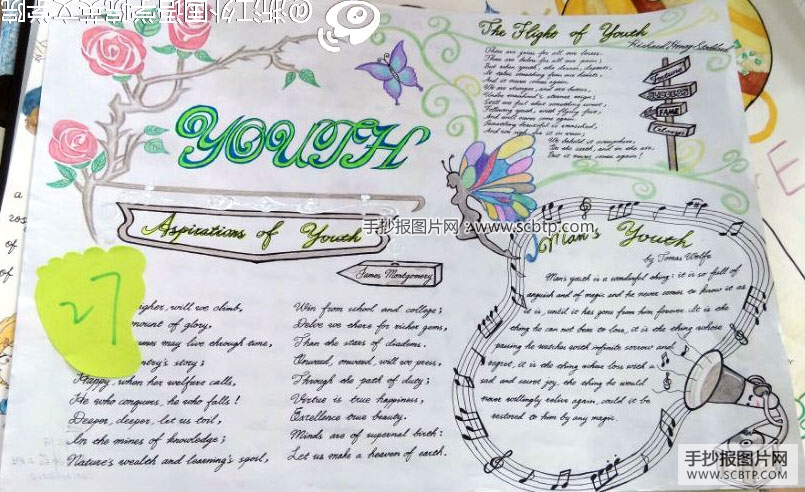 @浙江外国语学院英文学院
YOUTH
The Flight of Youth
Richard Henry Stoddard
There are gains for all our losses.
There are balms for all our pain;
But when youth, the dream, departs,
It takes something from our hearts,
And it never comes again.
We are stronger, and are better,
Under manhood's sterner reign;
Still we feel that something sweet,
Following youth, with flying feet,
And will never come again.
Something beautiful is vanished,
And we sigh for it in vain;
We behold it everywhere,
On the earth, and in the air,
But it never comes again!
FAME
手抄报图片网：www.scbtp.com
Aspirations of Youth
James Montgomery
igher, will we climb,
mount of glory,
may live through time,
ntry's story;
Happy, when her welfare calls,
He who conquers, he who falls!
Deeper, deeper, let us toil,
In the mines of knowledge;
Nature's wealth and learning's spoil,
Win from school and college;
Delve we there for richer gems,
Than the stars of diadems.
Onward, onward, will we press,
Through the path of duty;
Virtue is true happiness,
Excellence true beauty.
Minds are of supernal birth:
Let us make a heaven of earth.
27
Man's Youth
by Tomas Wolfe
Man's youth is a wonderful thing: it is so full of
anguish and of magic and he never comes to know it as
it is, until it has gone from him forever. It is the
thing he can not bear to lose, it is the thing whose
passing he watches with infinite sorrow and
regret, it is the thing whose loss with a
sad and secret joy, the thing he would
never willingly relive again, could it be
restored to him by any magic.
手抄报图片网
WWW.SCBTP.COM